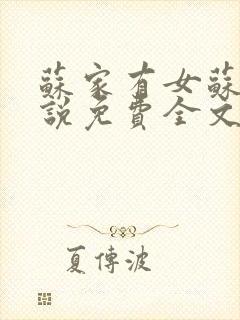 蘇家有女蘇
說免費全文
夏傳波